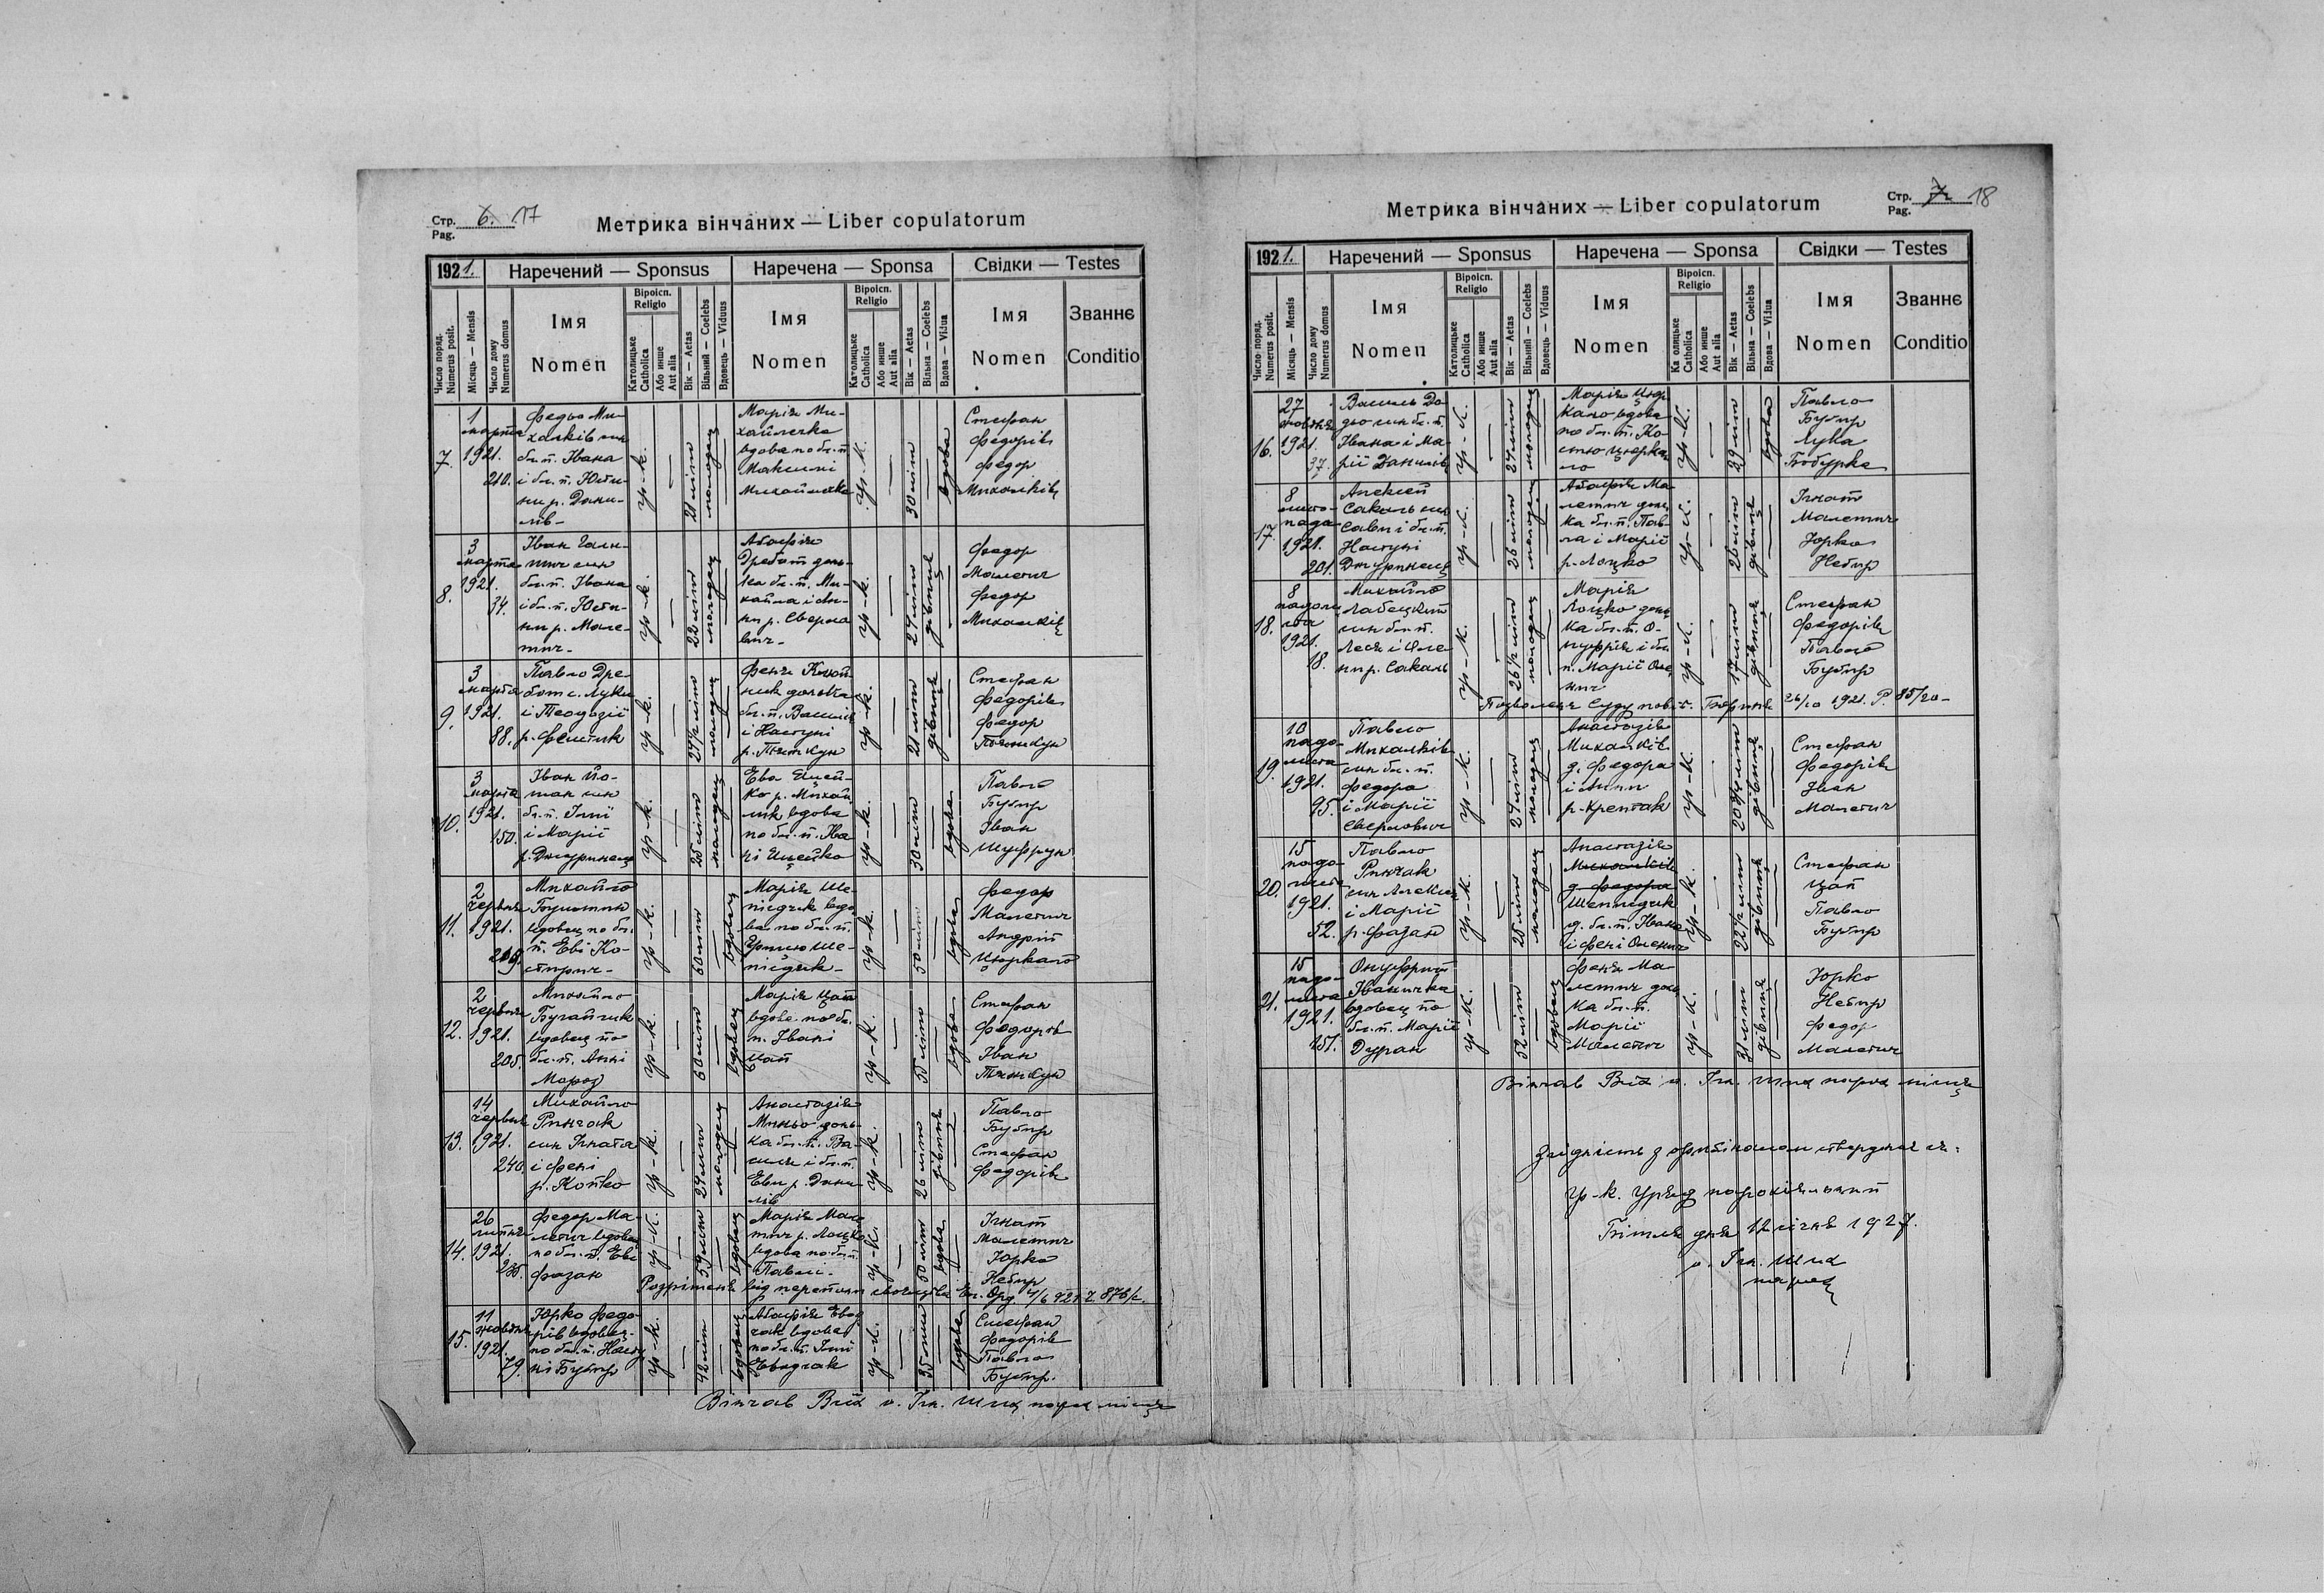 Стр. 6. 17
Pag.
Метрика вінчаних — Liber copulatorum
1921.
Наречений — Sponsus
Наречена — Sponsa
Свідки — Testes
Число поряд.
Numerus posit.
Місяць — Mensis
Число дому
Numerus domus
Імя
Nomen
Віроісп.
Religio
Католицьке
Catholica
Або инше
Aut alia
Вік — Aetas
Вільний — Coelebs
Вдовець — Viduus
Імя
Nomen
Віроісп.
Religio
Католицьке
Catholica
Або инше
Aut alia
Вік — Aetas
Вільна — Coelebs
Вдова — Vidua
Імя
Nomen
Званнє
Conditio
7.
1
марта
1921.
210.
Федьо Ми-
халків син
бл. п. Івана
і бл. п. Юсти-
ни р. Дани-
лів-
гр-к.
21 літ
молодец
Марія Ми-
хайлечка
вдова по бл. п.
Максимі
Михайлечка
гр-к.
30 літ
вдова
Стефан
Федорів
Федор
Михалків
8.
3
марта
1921.
34.
Іван
син
бл. п. Івана
і бл. п. Юсти-
ни р. Мале-
тич-
гр-к.
22 літ
молодец
Агафія
Дребот донь-
ка бл. п. Ми-
хайла і Ан-
ни р. Сверло
вич-
гр-к.
27 літ
дівиця
Федор
Малетич
Федор
Михалків
9.
3
марта
1921.
88.
Павло Дре-
бот с. Луки
і Теодозії
р.
гр-к.
молодец
Феня
донька
бл. п. Василя
і Настуні
р. Пятикун
гр-к.
21 літ
дівиця
Стефан
Федорів
Федор
Пятикун
10.
3
марта
1921.
150.
Іван Йо-
шак син
бл. п. Ілії
і Марії
р. Джуринець
гр-к.
25 літ
молодец
Ева
ко р. Михай
лик вдова
по бл. п. Іва
ні
гр-к.
30 літ
вдова
Павло
Бубнір
Іван
Шуфрун
11.
2
червня
1921.
Михайло
вдовец по бл.
п. Еві Ко-
гр-к.
60 літ
вдовец
Марія Ше-
вдо
ва по бл. п.
гр-к.
50 літ
вдова
Федор
Малетич
Андрій
Цюркало
12.
2
червня
1921.
205.
Михайло
Бугайчик
вдовец по
бл. п. Анні
Мороз
гр-к.
60 літ
вдовец
Марія Цап
вдова по бл.
п. Івані
Цап
гр-к.
вдова
Стефан
Федорів
Іван
Пятикун
13.
14
червня
1921.
240.
Михайло
Ринчак
син Ігната
і Фені
р. Копко
гр-к.
24 літ
молодец
Анастазія
Миньо донь-
ка бл. п. Ва-
силя і бл. п.
Еви р. Дани
лів
гр-к.
26 літ
дівиця
Павло
Бубнір
Стефан
Федорів
14.
26
липня
1921.
Федор Ма-
летич вдовец
по бл. п. Еві
Фазан
гр-к.
59 літ
вдовец
Марія Мале
тич р. Лоцко
вдова по бл. п.
Павлі-
гр-к.
50 літ
вдова
Ігнат
Малетич
Юрко
Небир
від перепони Еп. Орд. 4/6 921 ч. 876/
15.
11
жовтня
1921.
79.
Юрко Федо-
рів вдовец-
по бл. п. Насту
ні Бубнір
гр-к.
42 літ
вдовец
Агафія
вдова
по бл. п. Ілії
гр-к.
35 літ
вдова
Стефан
Федорів
Павло
Бубнір.
Вінчав Всіх о. Ігн. парох місця
Стр. 7. 18
Pag.
Метрика вінчаних — Liber copulatorum
1921.
Наречений — Sponsus
Наречена — Sponsa
Свідки — Testes
Число поряд.
Numerus posit.
Місяць — Mensis
Число дому
Numerus domus
Імя
Nomen
Віроісп.
Religio
Католицьке
Catholica
Або инше
Aut alia
Вік — Aetas
Вільний — Coelebs
Вдовець — Viduus
Імя
Nomen
Віроісп.
Religio
Ка олицьке
Catholica
Або инше
Aut alia
Вік — Aetas
Вільна — Coelebs
Вдова — Vidua
Імя
Nomen
Званнє
Conditio
16.
27
жовтня
1921.
37.
Василь До-
син бл. п.
Івана і Ма-
рії Данилів
гр-к.
24 літ
молодец
Марія Цюр
кало вдова
по бл. п. Ко-
стю Цюрка
ло
гр-к.
29 літ
вдова
Павло
Бубнір
Лука
17.
8
листо-
пада
1921.
201.
Алексей
Сакаль син
Сави і бл. п.
Настуні
Джуринець
гр-к.
26 літ
молодец
Агафія Ма-
летич донь
ка бл. п. Пав-
ла і Марії
р. Лоцко
гр-к.
дівиця
Ігнат
Малетич
Юрко
Небир
18.
8
1921.
18.
Михайло
Лабецкий
син бл. п.
Леся і Оле-
ни р. Сакаль
гр-к.
26½ літ
молодец
Марія
Лоцко донь
ка бл. п. О-
нуфрія і бл.
п. Марії Оле
нич
гр-к.
17 літ
дівиця
Стефан
Федорів
Павло
Бубнір
Суду пов. 26/10 1921. Р. 85/20-
19.
10
падо-
листа
1921.
95.
Павло
Михалків
син бл. п.
Федора
і Марії
Сверлович
гр-к.
24 літ
молодец
Анастазія
Михалків
д. Федора
і Анни
р. Крептак
гр-к.
дівиця
Стефан
Федорів
Іван
Малетич
20.
15
падо-
листа
1921.
52.
Павло
Ринчак
син Алексия
і Марії
р. Фазан
гр-к.
25 літ
молодец
Анастазія
Михалків
д. Федора
д. бл. п. Івана
і Фені Оленич
гр-к.
22½ літ
дівиця
Стефан
Цап
Павло
Бубнір
21.
15
падо-
листа
1921.
151.
Онуфрий
Іваничка
вдовец по
бл. п. Марії
Дуран
гр-к.
52 літ
вдовец
Феня Ма-
летич донь
ка бл. п.
Марії
Малетич
гр-к.
31 літ
дівиця
Юрко
Небир
Федор
Малетич
Вінчав Всіх о. Ігн. парох місця
Згідність з оригіналом стверджає ся:
Гр-к. Уряд парохіяльний
дня 12 січня 1927.
о. Ігн.
парох